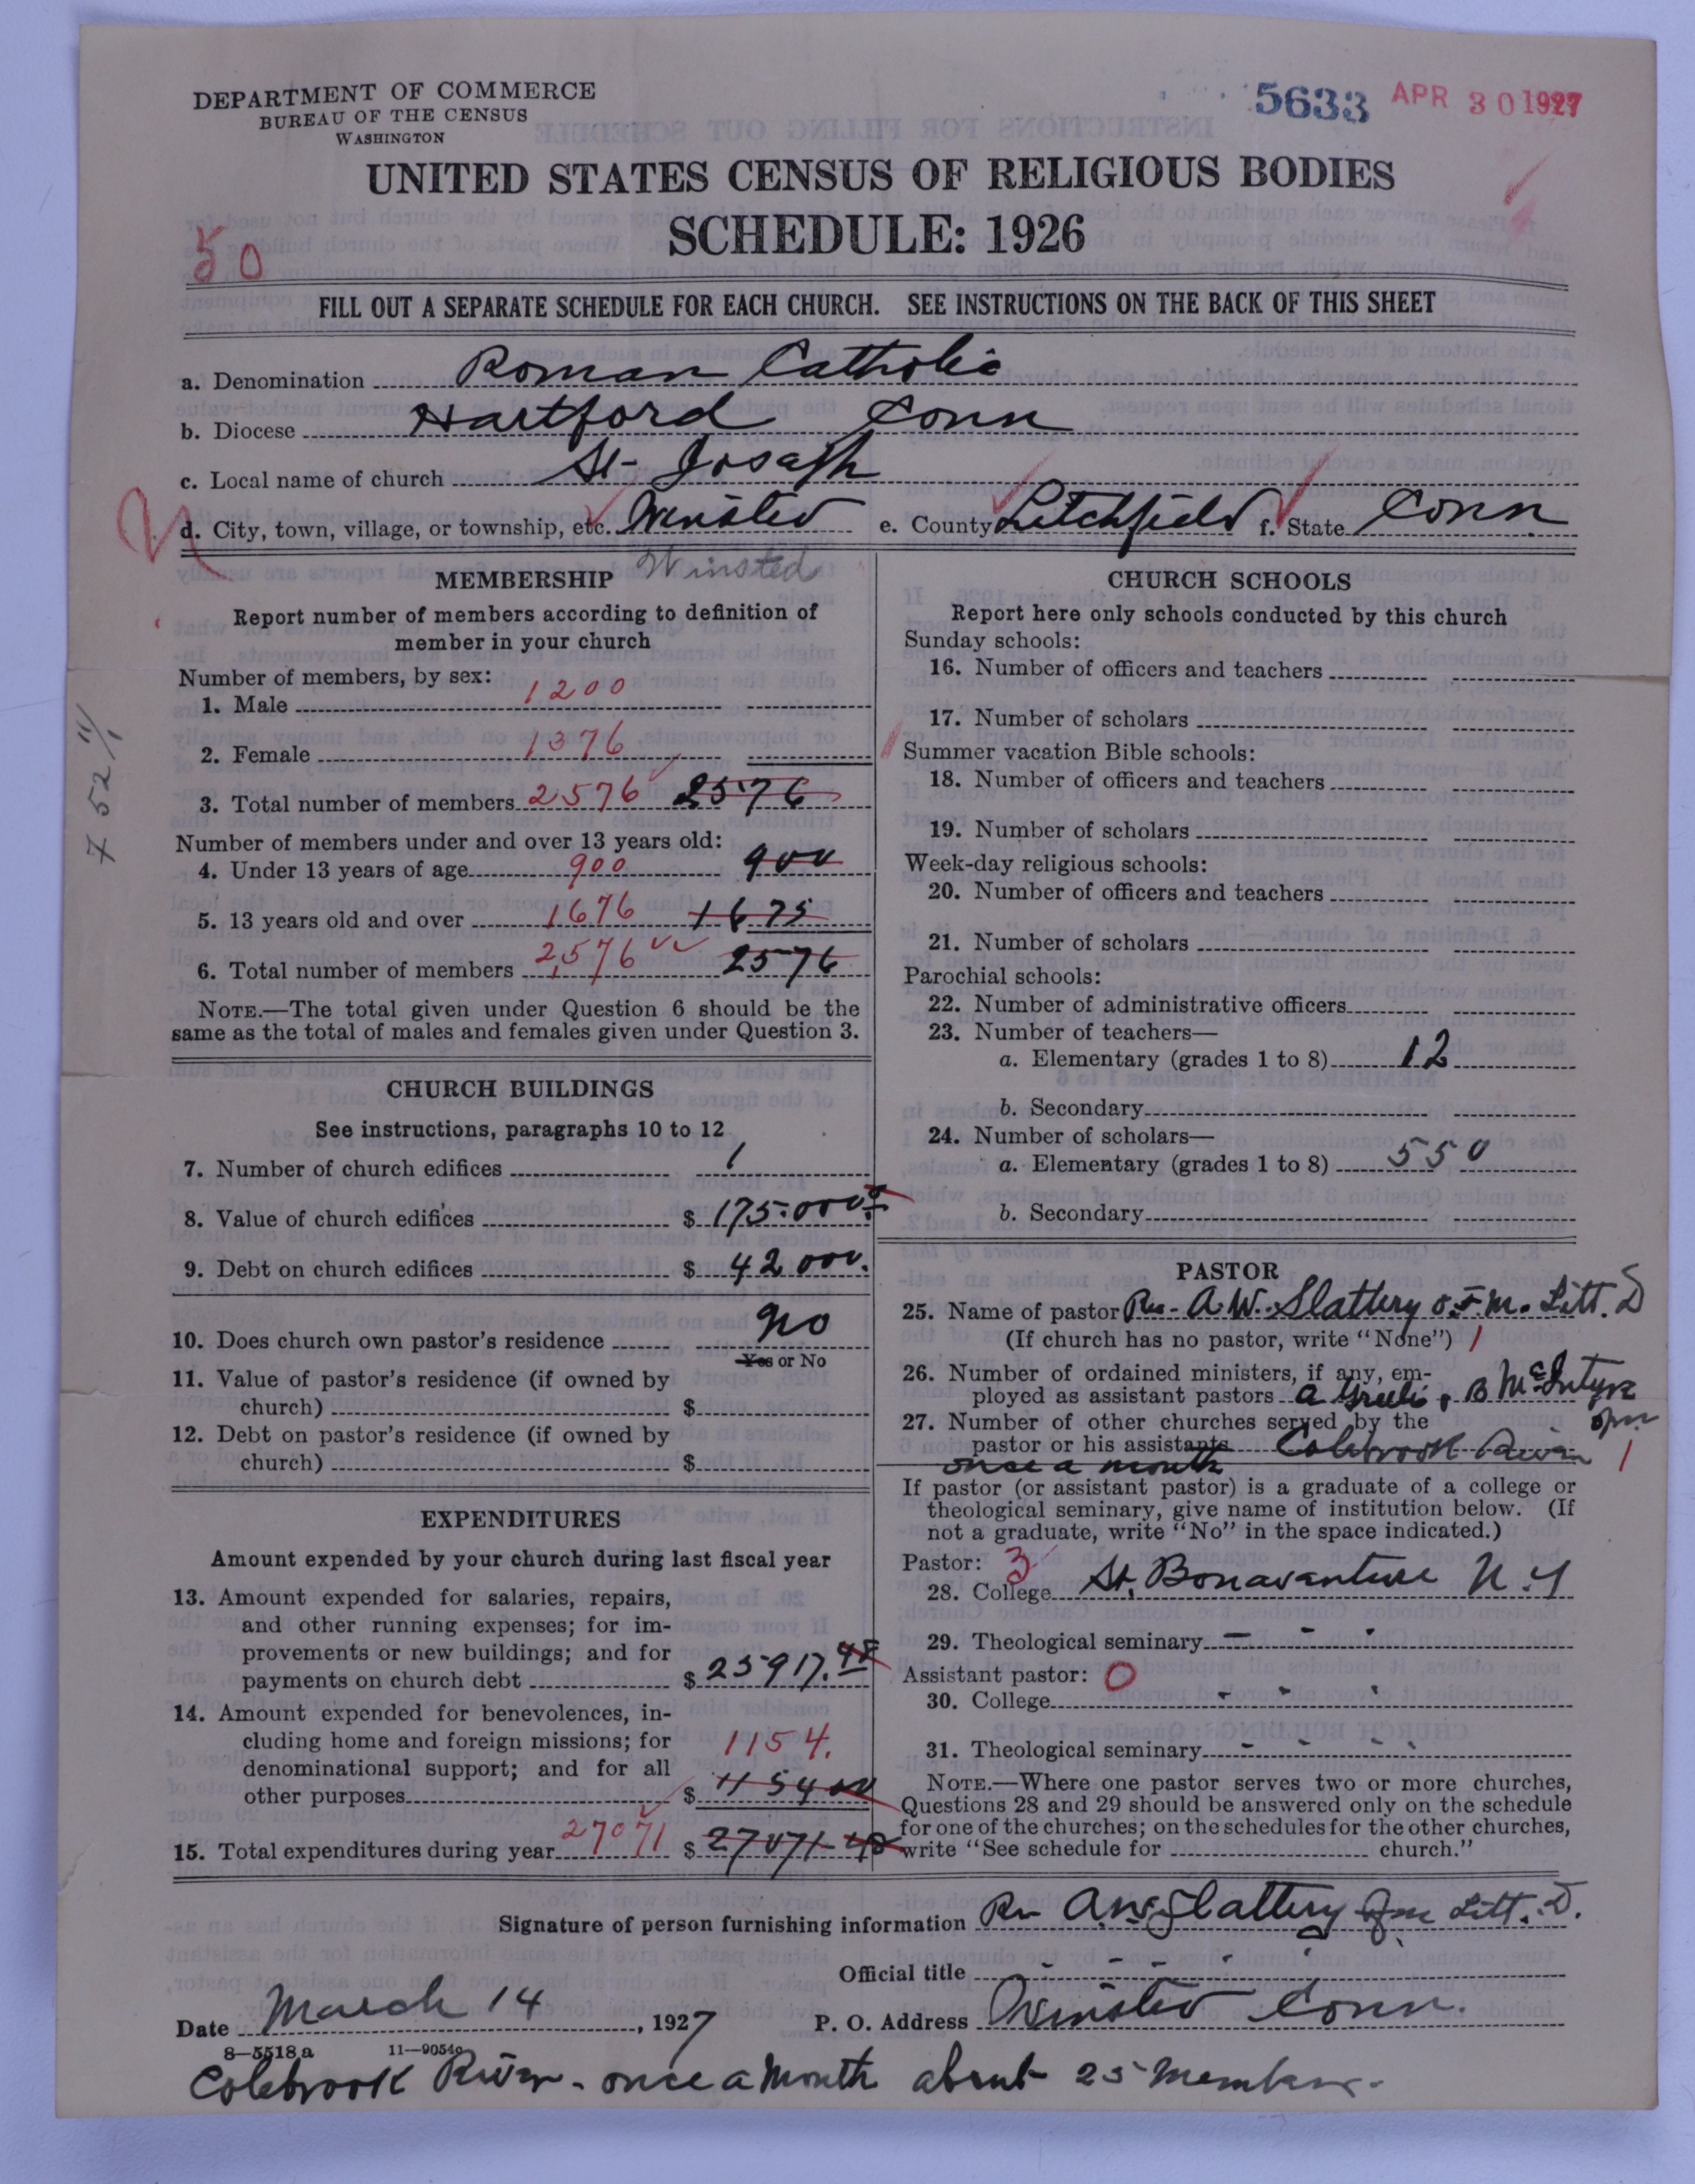 DEPARTMENT OF COMMERCE
BUREAU OF THE CENSUS
WASHINGTON
5633 APR 30 1927
UNITED STATES CENSUS OF RELIGIOUS BODIES
SCHEDULE: 1926
50
FILL OUT A SEPARATE SCHEDULE FOR EACH CHURCH. SEE INSTRUCTIONS ON THE BACK OF THIS SHEET
a. Denomination Roman Catholic
b. Diocese Hartford Conn
c. Local name of church St- Joseph
d. City, town, village, or township, etc. Winsted e. County Litchfield f. State Conn
Winsted
MEMBERSHIP
Report number of members according to definition of
member in your church
Number of members, by sex:
1. Male 1200
2. Female 1376
3. Total number of members 2576 2576
Number of members under and over 13 years old:
4. Under 13 years of age 900 900
5. 13 years old and over 1676 1675
6. Total number of members 2,576 2576
NOTE.—The total given under Question 6 should be the
same as the total of males and females given under Question 3.
CHURCH BUILDINGS
See instructions, paragraphs 10 to 12
7. Number of church edifices 1
8. Value of church edifices $ 175.000
9. Debt on church edifices $ 42000.
10. Does church own pastor's residence No
Yes or No
11. Value of pastor's residence (if owned by
church) $
12. Debt on pastor's residence (if owned by
church) $
EXPENDITURES
Amount expended by your church during last fiscal year
13. Amount expended for salaries, repairs,
and other running expenses; for im-
provements or new buildings; and for
payments on church debt $ 25917.48
14. Amount expended for benevolences, in-
cluding home and foreign missions; for 1154.
denominational support; and for all
other purposes $ 1154 00
15. Total expenditures during year 27071 $ 27071-48
CHURCH SCHOOLS
Report here only schools conducted by this church
Sunday schools:
16. Number of officers and teachers
17. Number of scholars
Summer vacation Bible schools:
18. Number of officers and teachers
19. Number of scholars
Week-day religious schools:
20. Number of officers and teachers
21. Number of scholars
Parochial schools:
22. Number of administrative officers
23. Number of teachers—
a. Elementary (grades 1 to 8) 12
b. Secondary
24. Number of scholars—
a. Elementary (grades 1 to 8) 550
b. Secondary
PASTOR
25. Name of pastor Rev- A.W. Slattery O.F.M. Litt. D
(If church has no pastor, write "None") 1
26. Number of ordained ministers, if any, em-
ployed as assistant pastors A & B McIntyre
ofm
27. Number of other churches served by the
pastor or his assistants Colebrook River 1
once a month
If pastor (or assistant pastor) is a graduate of a college or
theological seminary, give name of institution below. (If
not a graduate, write "No" in the space indicated.)
Pastor: 3
28. College St. Bonaventure N.Y
29. Theological seminary - - -
Assistant pastor: 0
30. College - - -
31. Theological seminary - - - -
NOTE.—Where one pastor serves two or more churches,
Questions 28 and 29 should be answered only on the schedule
for one of the churches; on the schedules for the other churches,
write "See schedule for church."
Signature of person furnishing information Rev A.W. Slattery Ofm Litt. D.
Official title
Date March 14, 1927 P. O. Address Winsted Conn.
8—5518 a 11—9054
Colebrook River - once a month about 25 members.
7 52 11/1